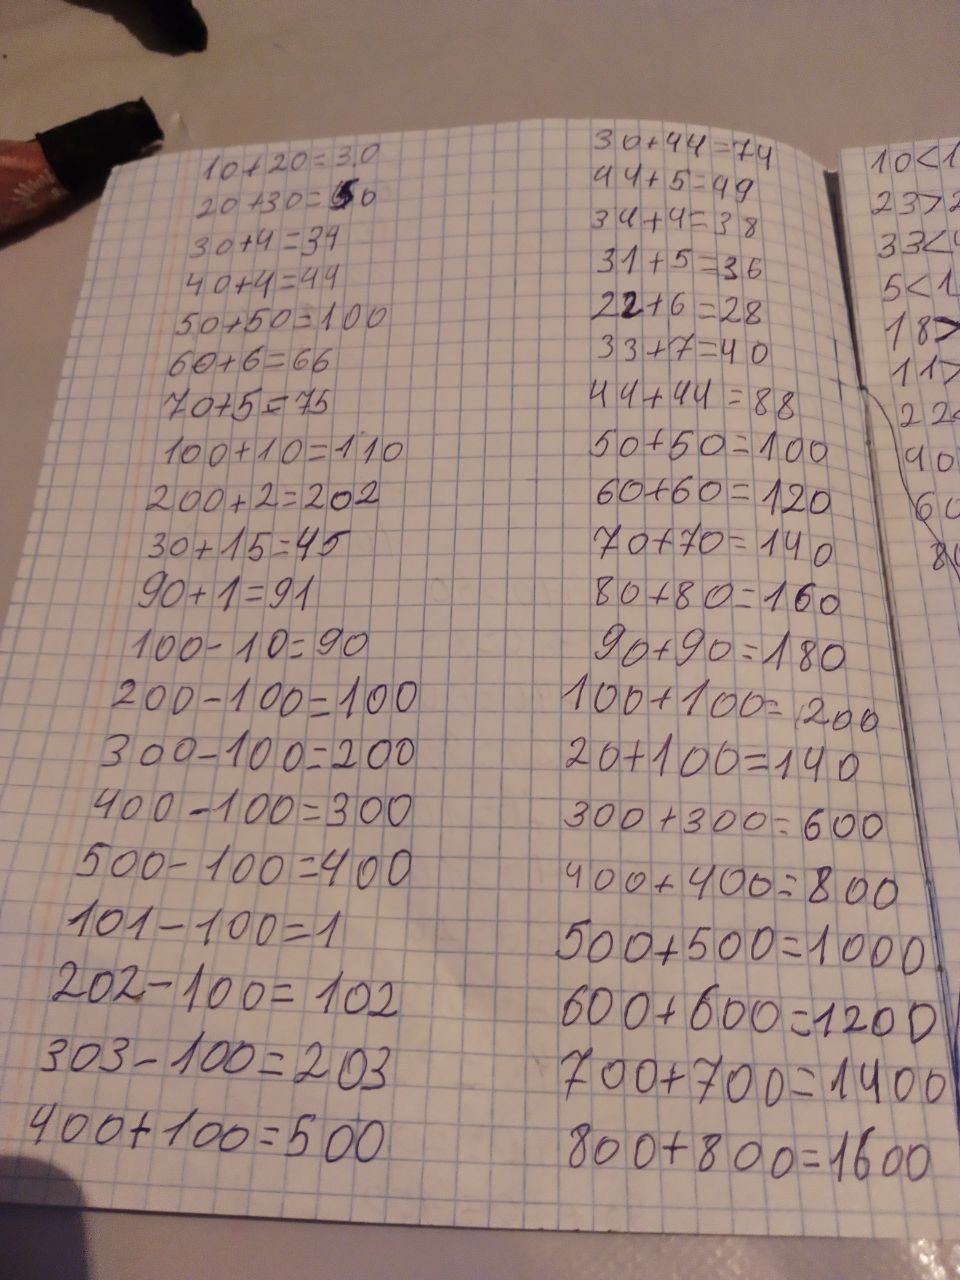 10+20=30
20+30=50
30+4=34
40+4=44
50+50=100
60+6=66
70+5=75
100+10=110
200+2=202
30+15=45
90+1=91
100-10=90
200-100=100
300-100=200
400-100=300
500-100=400
101-100=1
202-100=102
303-100=203
400+100=500
30+44=74
44+5=49
34+4=38
31+5=36
22+6=28
33+7=40
44+44=88
50+50=100
60+60=120
70+70=140
80+80=160
90+90=180
100+100=200
20+100=140
300+300=600
400+400=800
500+500=1000
600+600=1200
700+700=1400
800+800=1600
10<1
23>2
33<4
5<1
18>
11>
22<
40
60
80